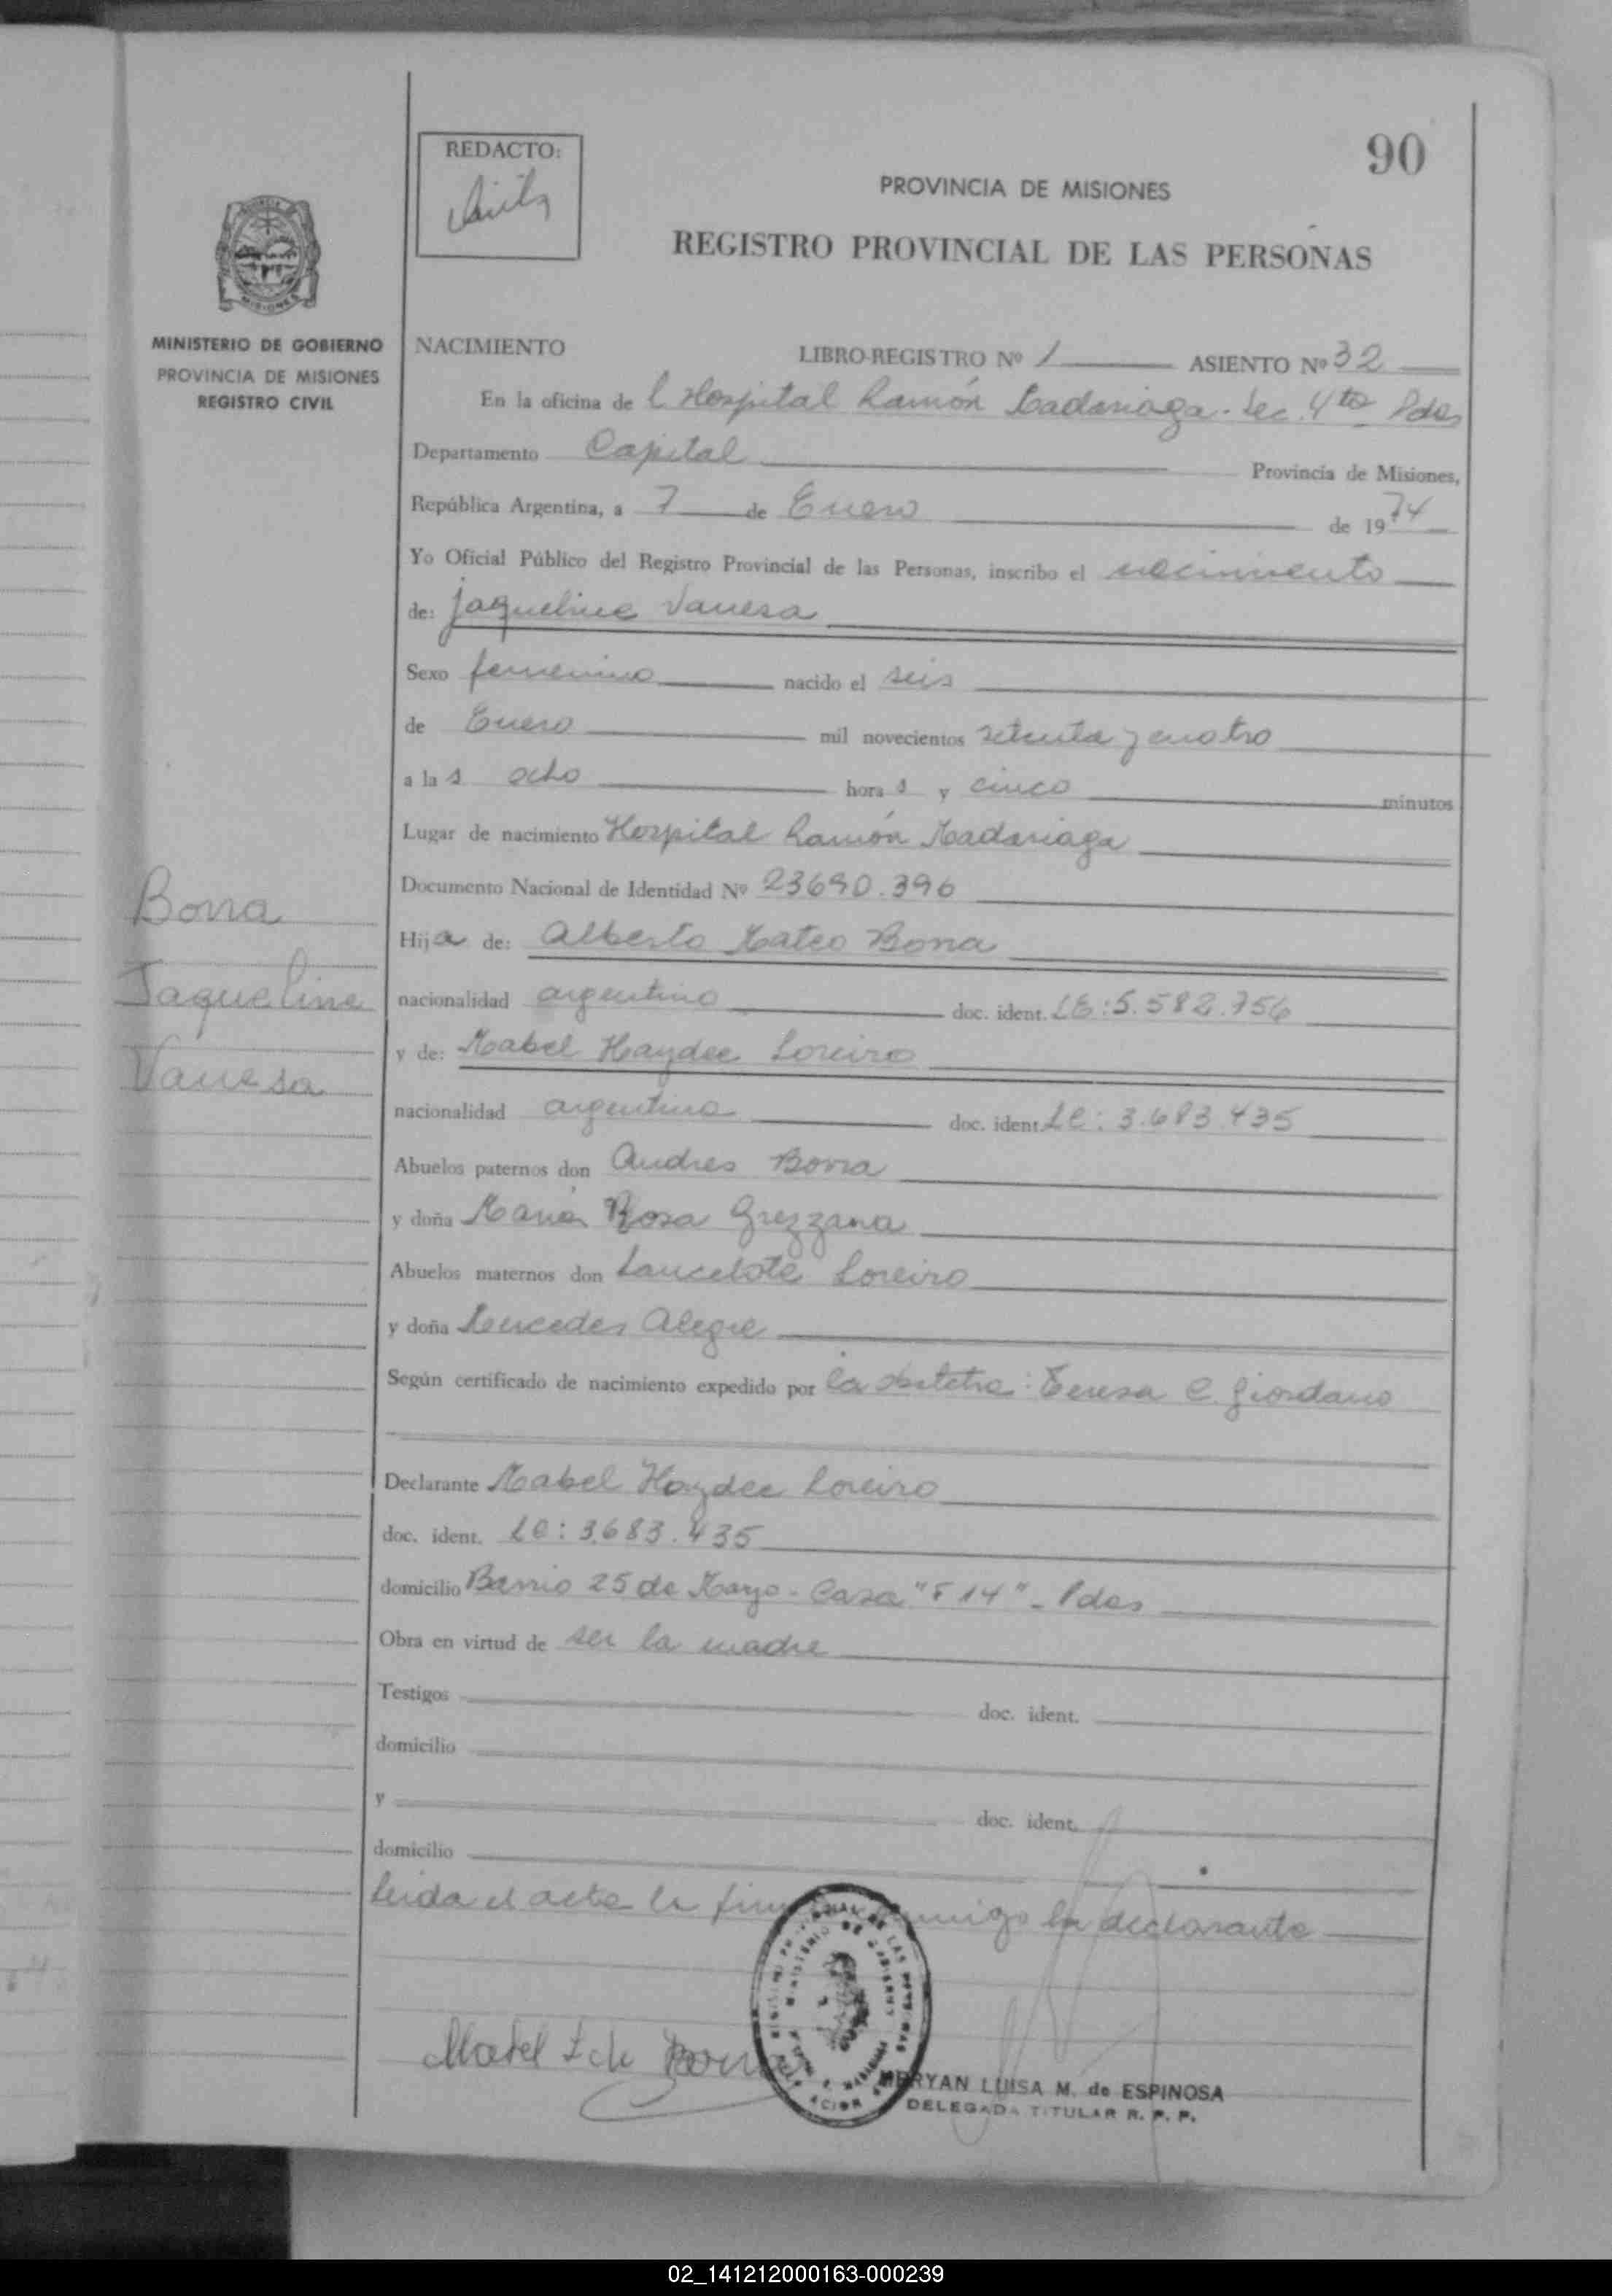 90
REDACTO:
PROVINCIA DE MISIONES
REGISTRO PROVINCIAL DE LAS PERSONAS
MISIONES
MINISTERIO DE GOBIERNO
PROVINCIA DE MISIONES
REGISTRO CIVIL
NACIMIENTO LIBRO-REGISTRO Nº 1 ASIENTO Nº 32
En la oficina de l Hospital Ramón Madariaga - Sec. 4ta Pdas
Departamento Capital Provincia de Misiones,
República Argentina, a 7 de Enero de 1974
Yo Oficial Público del Registro Provincial de las Personas, inscribo el nacimiento
de: Jaqueline Vanesa
Sexo femenino nacido el seis
de Enero mil novecientos setenta y cuatro
a las ocho horas y cinco minutos
Lugar de nacimiento Hospital Ramón Madariaga
Documento Nacional de Identidad Nº 23690.396
Borra
Jaqueline
Vanesa
Hija de: Alberto Mateo Borra
nacionalidad argentino doc. ident. LE: 5.582.756
y de: Mabel Haydee Loreiro
nacionalidad argentina doc. ident. LC: 3.683.435
Abuelos paternos don Andres Borra
y doña Maria Rosa Grezzana
Abuelos maternos don Lancelote Loreiro
y doña Mercedes Alegre
Según certificado de nacimiento expedido por la obstetra: Teresa C. Giordano
Declarante Mabel Haydee Loreiro
doc. ident. LC: 3.683.435
domicilio Barrio 25 de Mayo - Casa "F 14" - Pdas
Obra en virtud de ser la madre
Testigos doc. ident.
domicilio
y doc. ident.
domicilio
Leida el acta la firma conmigo la declarante
Mabel L de Borra
MERYAN LUISA M. de ESPINOSA
DELEGADA TITULAR R. P. P.
02_141212000163-000239